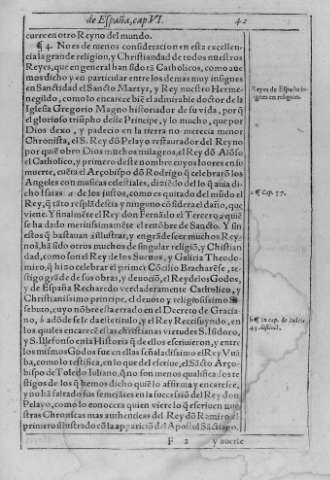 de España, cap. VI. 42
curre en otro Reyno del mundo.
¶ 4. No es de menos consideracion en esta excelen-
cia la grande religion, y Christiandad de todos nuestros
Reyes, que en general han sido tã Catholicos, como ave
mos dicho y en particular entre los demas muy insignes
en Sanctidad el Sancto Martyr, y Rey nuestro Herme-
negildo, como lo encarece biẽ el admirable doctor de la
Iglesia Gregorio Magno historiador de su vida, por q̃
el glorioso triũpho deste Principe, y lo mucho, que por
Dios dexo, y padecio en la tierra no merecia menor
Chronista, el S. Rey dõ Pelayo restaurador del Reyno
por quiẽ obro Dios muchos milagros, el Rey dõ Alõso
el Catholico, y primero deste nombre cuyos loores en su
muerte, cuẽta el Arçobispo dõ Rodrigo q̃ celebrarõ los
Angeles con musicas celestiales, diziẽdo del lo q̃ avia di-
cho Isaias de los justos, como es quitado del mũdo el
Rey, q̃ tãto resplãdescia y ninguno cõsidera el daño, que
viene. Y finalmẽte el Rey don Fernãdo el Tercero, a quiẽ
se ha dado meritissimamẽte el renõbre de Sancto. Y sin
estos q̃ bastavan a illustrar, y engrãdescer muchos Rey-
nos, hã sido otros muchos de singular religiõ, y Christian
dad, como son el Rey de los Suevos, y Galicia Theodo-
miro, q̃ hizo celebrar el primer Cõcilio Bracharẽse, te-
stigo grãde de sus obras, y devociõ, el Rey de los Godos,
y de España Recharedo verdaderamente Catholico, y
Christianissimo principe, el devoto y religiosissimo Si-
sebuto, cuyo nõbre està cerrado en el Decreto de Gracia-
no, à adõde se le da este titulo, y el Rey Reccisvyndo, en
los quales encarecẽ estas christianas virtudes S. Isidoro,
y S. Illefonso en la Historia q̃ de ellos escrivieron, y entre
los mismos Godos fue en ellas señaladissimo el Rey Vvã
ba, como lo testifica, en lo que del escrive, el Sãcto Arço-
bispo de Toledo Iuliano, q̃ no son menos qualificados te
stigos de los q̃ hemos dicho quiẽ lo affirma y encarece,
y no hã faltado sus semejãtes en la successiõ del Rey don
Pelayo, como lo conocera quien viere lo q̃ escriven nue
stras Chronicas mas autenticas del Rey dõ Ramiro el
primero illustrado cõ la appariciõ del Apostol Sãctiago.
F 2 y socrie
Reyes de España in
signes en religion.
a ¶ Cap. 57.